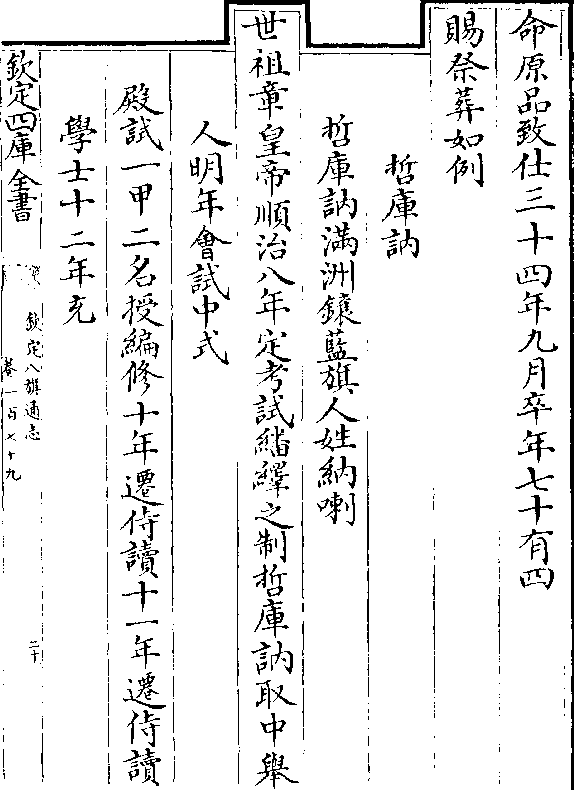 命原品致仕三十四年九月卒年七十有四
賜祭葬如例
哲庫訥
哲庫訥滿洲鑲藍旗人姓納喇
世祖章皇帝順治八年定考試繙繹之制哲庫訥取中舉
人明年會試中式
殿試一甲二名授編修十年遷侍讀十一年遷侍讀
學士十二年充
欽定四庫全書
欽定八旗通志
卷一百七十九
二十